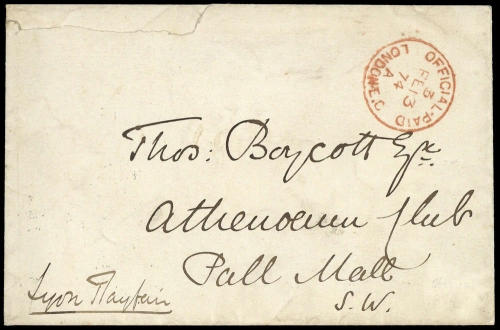 OFFICIAL-PAID
LONDON E.C
A
3
FE 13
74
Thos: Boycott Esqr.
Athenaeum Club
Pall Mall
S.W.
Lyon Playfair